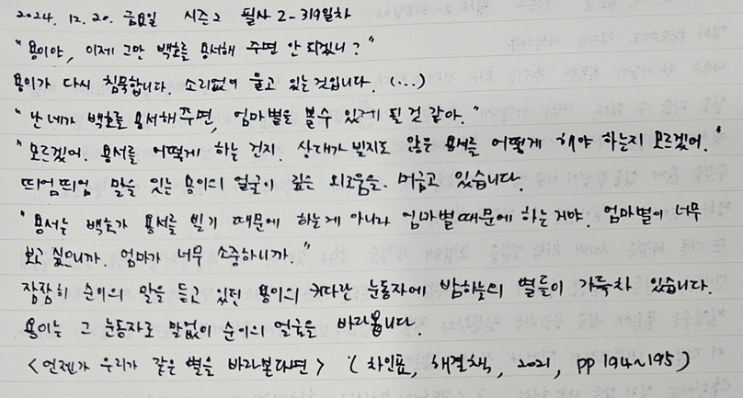 2024. 12. 20. 금요일 시즌2 필사 2-319일차
"용이야, 이제 그만 백호를 용서해 주면 안 되겠니?"
용이가 다시 침묵합니다. 소리없이 울고 있는 것입니다. (...)
"난 네가 백호를 용서해주면, 엄마별을 볼 수 있게 될 것 같아."
"모르겠어. 용서를 어떻게 하는 건지. 상대가 빌지도 않은 용서를 어떻게 해야 하는지 모르겠어."
띄엄띄엄 말을 잇는 용이의 얼굴이 깊은 외로움을 머금고 있습니다.
"용서는 백호가 용서를 빌기 때문에 하는게 아니라 엄마별 때문에 하는거야. 엄마별이 너무
보고 싶으니까. 엄마가 너무 소중하니까."
잠잠히 순이의 말을 듣고 있던 용이의 커다란 눈동자에 밤하늘의 별들이 가득차 있습니다.
용이는 그 눈동자로 말없이 순이의 얼굴을 바라봅니다.
<언젠가 우리가 같은 별을 바라본다면> (차인표, 해결책, 2021, pp 194~195)